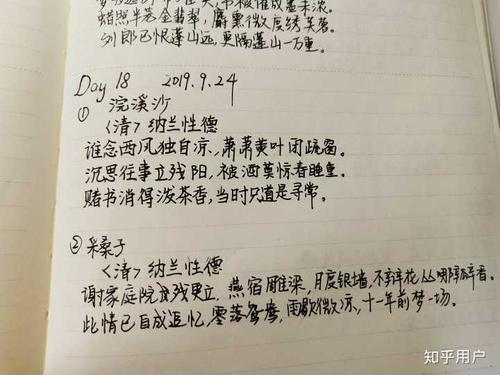 蜡照半笼金翡翠，麝熏微度绣芙蓉。
刘郎已恨蓬山远，更隔蓬山一万重。
Day 18 2019.9.24
① 浣溪沙
〈清〉纳兰性德
谁念西风独自凉，萧萧黄叶闭疏窗。
沉思往事立残阳，被酒莫惊春睡重。
赌书消得泼茶香，当时只道是寻常。
② 采桑子
〈清〉纳兰性德
谢家庭院残更立，燕宿雕梁，月度银墙，不辩花丛哪瓣香。
此情已自成追忆，零落鸳鸯，雨歇微凉，十一年前梦一场。
知乎用户